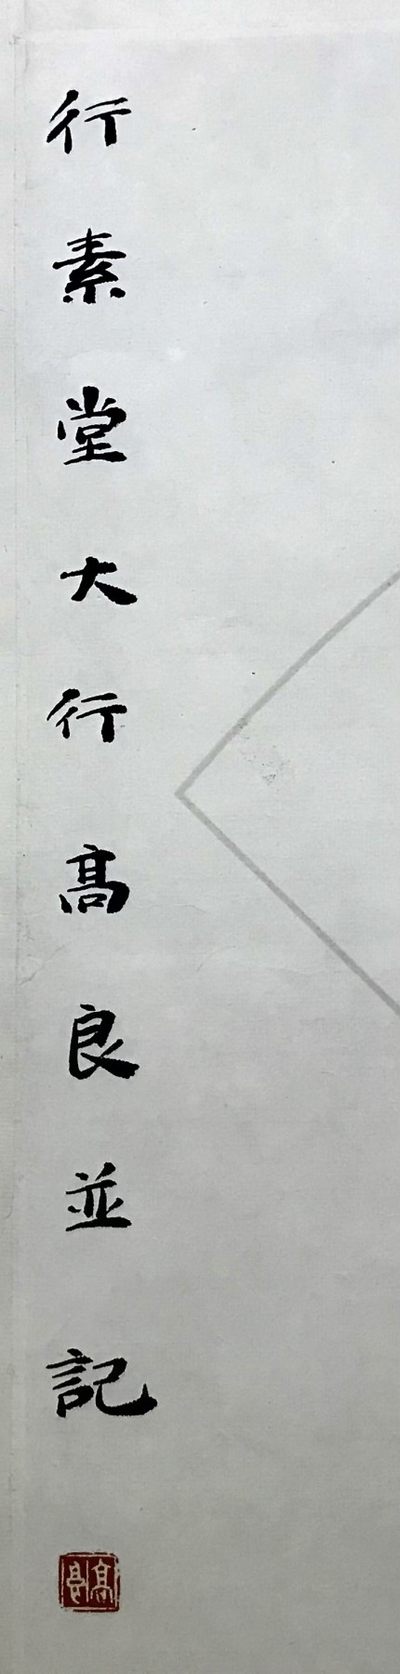 行素堂大行高良並記
高良